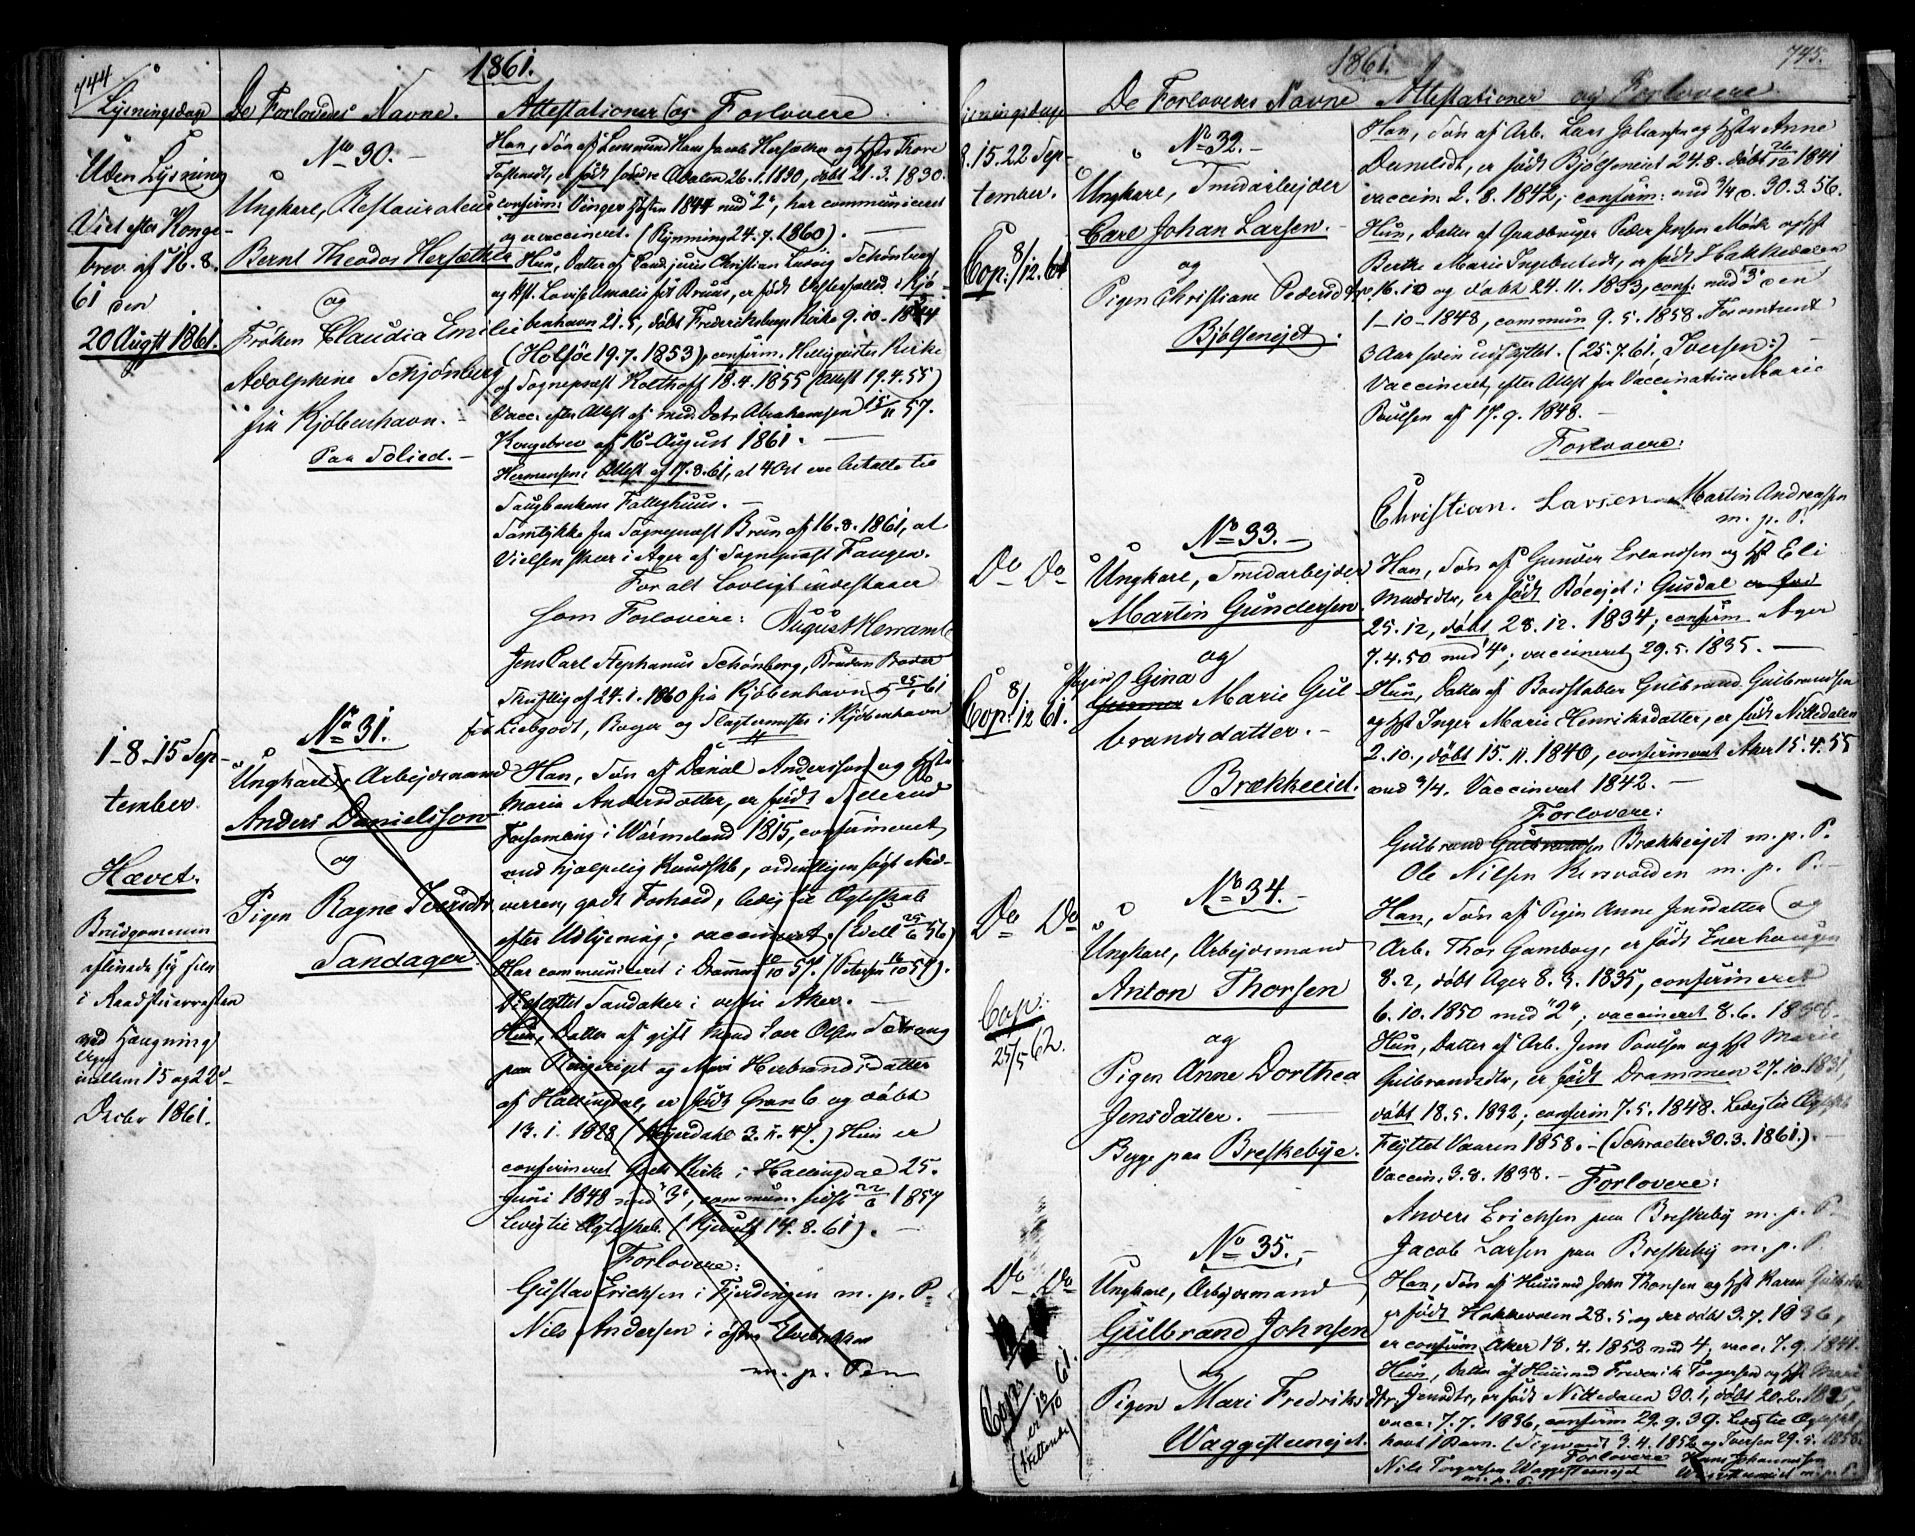 744
1861.
Lysningsdage De Forlovedes Navne. Attestationer og Forlovere
Uden Lysning
Viet efter Konge-
brev af 16.8.
61 den
20 Augst 1861.
No 30.-
Ungkarl, Restaurateur
Bernt Theodor Hersæther
og
Frøken Claudia Emilie
Adolphine Schjønberg
fra Kjøbenhavn.
Paa Solied.-
Han, Søn af Lensmand Hans Jacob Hersæther og Hst Thore
født søndre Odalen 26.1.1830, døbt 21.3.1830.
confirm: Vinger Høsten 1844 med 2", har communiceret
og er vaccineret. (Rynning 24.7.1860).
Hun, Datter af Christian Ludvig Schønberg
og Hst. Lovise Amalie født Bruus, er født i Kjø-
benhavn 21.5, døbt Frederiksbergs Kirke 9-10-1844
(Holsøe 19.7.1853), confirm. Helliggeistes Kirke
af Sognepræst Kolthoff 18.4.1855 (attest 19.4.55)
Vacc: efter Attest af med. Doctr Abrahamsen 15/11 57.
Kongebrev af 16 August 1861.
Hermansens Attest af 17.8.61, at 4 Ort ere betalte til
Taugbankens Fattighuus.-
Samtykke fra Sognepræst Bruun af 16.8.1861, at
Vielsen skeer i Ager af Sognepræst Fangen.
For alt Lovligt indestaaer
som Forlovere: August
Jens Carl Stephanus Schønberg, Brudens Broder
Skriftlig af 24.1.1860 fra Kjøbenhavn 25/1 61
fra Liebgodt, Borger og Slagtermester i Kjøbenhavn
1-8-15 Sep-
tember.
Hævet.
Brudgommen
aflivede sig selv
i Raadstuearresten
ved Hængning
mellem 15 og 22d
Decbr 1861.
No 31.
Ungkarl, Arbejdsmand
Anders Danielsson
og
Pigen Ragne Iversdtr
Sandager
Han, Søn af Danial Andersson og Hstu
Maria Andersdatter, er født
Forsamling i Wärmeland 1815, confirmeret
med hjælpelig Kundskb, ordentligen søgt Nad-
verren, godt Forhold, ledig til Ægteskab
efter Udlysning; vaccineret. (Well 25/6 56)
Har communiceret i Drammen 10/10 57. (Petersen 16/10 57).
Sandaker i vestre Aker.-
Hun, Datter af gift Mand Iver Olsen
paa Ringeriget og Mari Herbrandsdatter
af Hallingdal, er født Gran 6 og døbt
13.1.1828 ( 3.11.47.) Hun er
confirmeret Kirke i Hallingdal 25.
Juni 1848 med "3", commun. sidst 22/6 1857
Ledig til Ægteskab (Kjerulf 14.8.61).-
Forlovere:
Gustav Ericksen i Fjerdingen m.p.P.
Nils Andersen i østre Elvebakken
m. p. Pen
745.
1861.
Lysningsdage De Forlovedes Navne Attestationer og Forlovere.
8.15.22 Sep-
tember.
Cop: 8/12.61
No 32.-
Ungkarl, Smidarbejder
Carl Johan Larsen.-
og
Pigen Christiane Pedersdtr
Bjølsenejet.
Han, Søn af Arb. Lars Johansen og Hstr Anne
Danielsdt, er født Bjølseneiet 24.8. døbt 26/12 1841
vaccin: 2.8.1842; confirm: med 3/4 d. 30.3.56.
Hun, Datter af Grædbruger Peder Jensen Mørk og Hst
Berthe Marie Ingebretsdt, er født Hakkedalen
16.10 og døbt 24.11.1833, conf. med "3" den
1-10-1848, commun 9.5.1858. Foromtrent
3 Aar siden udflyttet. (25.7.61, Iversen:)
Vaccineret, efter Attest fra Vaccinatrice Marie
Poulsen af 17.9.1848.-
Forlovere:
Christian. Larsen. Martin Andreassen
m. p. P.
Do Do
Cop: 8/12 61.
No 33.-
Ungkarl, Smidarbejder
Martin Gundersen
og
Pigen Gina
Marie Gul-
brandsdatter.-
Brækkeeid.
Han, Søn af Gunder Erlandsen og Hst Eli
Madsdtr, er født Bøeejet i Gusdal
25.12, døbt 28.12.1834; confirm Ager
7.4.50 med "4"; vaccineret 29.5.1835.-
Hun, Datter af Bordstabler Gulbrand Gulbrandsen
og Hst Inger Marie Henriksdatter, er født Nittedalen
2.10, døbt 15.11.1840, confirmeret Aker 15.4.55
med 3/4. Vaccineret 1842.-
Forlovere:
Gulbrand Gulbrandsen Brækkeejet m.p.P.
Ole Nilsen m.p.P.-
Do Do
Cop:
25/5 62.
No 34.-
Ungkarl, Arbejdsmand
Anton Thorsen
og
Pigen Anne Dorthea
Jensdatter.
Begge paa Breskebye.
Han, Søn af Pigen Anne Jensdatter og
Arb. Thor Gamborg, er født Enerhaugen
8.2, døbt Ager 8.3.1835, confirmeret
6.10.1850 med "2"; vaccineret 8.6.1838.
Hun, Datter af Arb. Jens Poulsen og Hst Marie
Gulbrandsdtr, er født Drammen 27.10.1831,
døbt 18.5.1832; confirm 7.5.1848. Ledig til Ægteskb
Flyttet Vaaren 1858.-(Schroeter 30.3.1861).-
Vaccin. 3.8.1838.- Forlovere:
Anders Ericksen paa Breskeby m.p.P.
Jacob Larsen paa Breskeby m.p.P.
Do Do
Cop: 13/10 61.
No 35.-
Ungkarl, Arbejdsmand
Gulbrand Johnsen
og
Pigen Mari Fredriksdtr
Waggesteenejet.
Han, Søn af Huusmd John Thorsen og Hst Karen
er født Hakkedalen 28.5. og der døbt 3.7.1836,
er confirm Aker 18.4.1852 med 4, vacc. 7.9.1841.
Hun, Datter af Huusmd Frederik Torgersen og Hst Mari
Jensdtr, er født Nittedalen 30.1, døbt 20.2.1825,
vacc: 7.7.1836, confirm 29.9.39. Ledig til Ægteskb,
havt 1 Barn. (Sigward 3.4.1852 og Iversen 29.5.1858.
Forlovere
Nils Torgersen Waggesteenejet
m. p. P. Hans Johannesen
m.p.P.